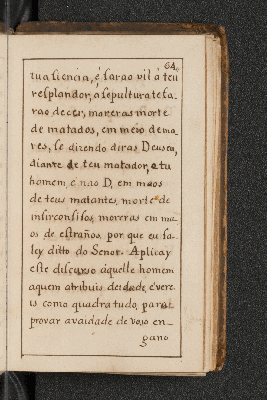 64.
tua siencia, é farao vil á teu
resplandor, á sepultura te fa-
rao decer, moreras morte
de matados, em meio de ma-
res, se dizendo diras Deus eu,
diante de teu matador, e tu
homem, e nao D. em maos
de teus matantes, morte de
insirconsisos, moreras em ma-
os de estraños, por que eu fa-
ley ditto do Senor. Aplicay
este discurso áquelle homem
aquem atribuis deidade, e vere-
is como quadra tudo, para
provar a vaidade de voso en-
gano